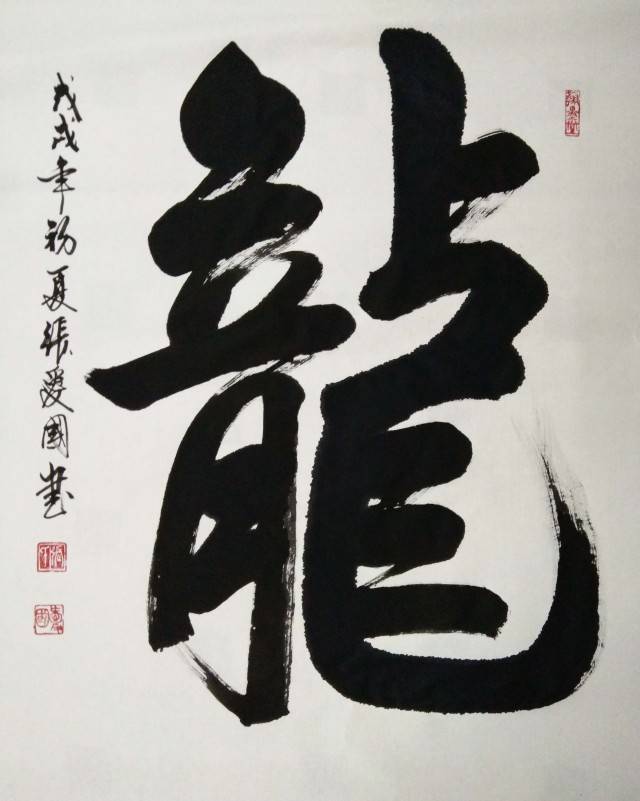 龍
戊戌年初夏張愛國書